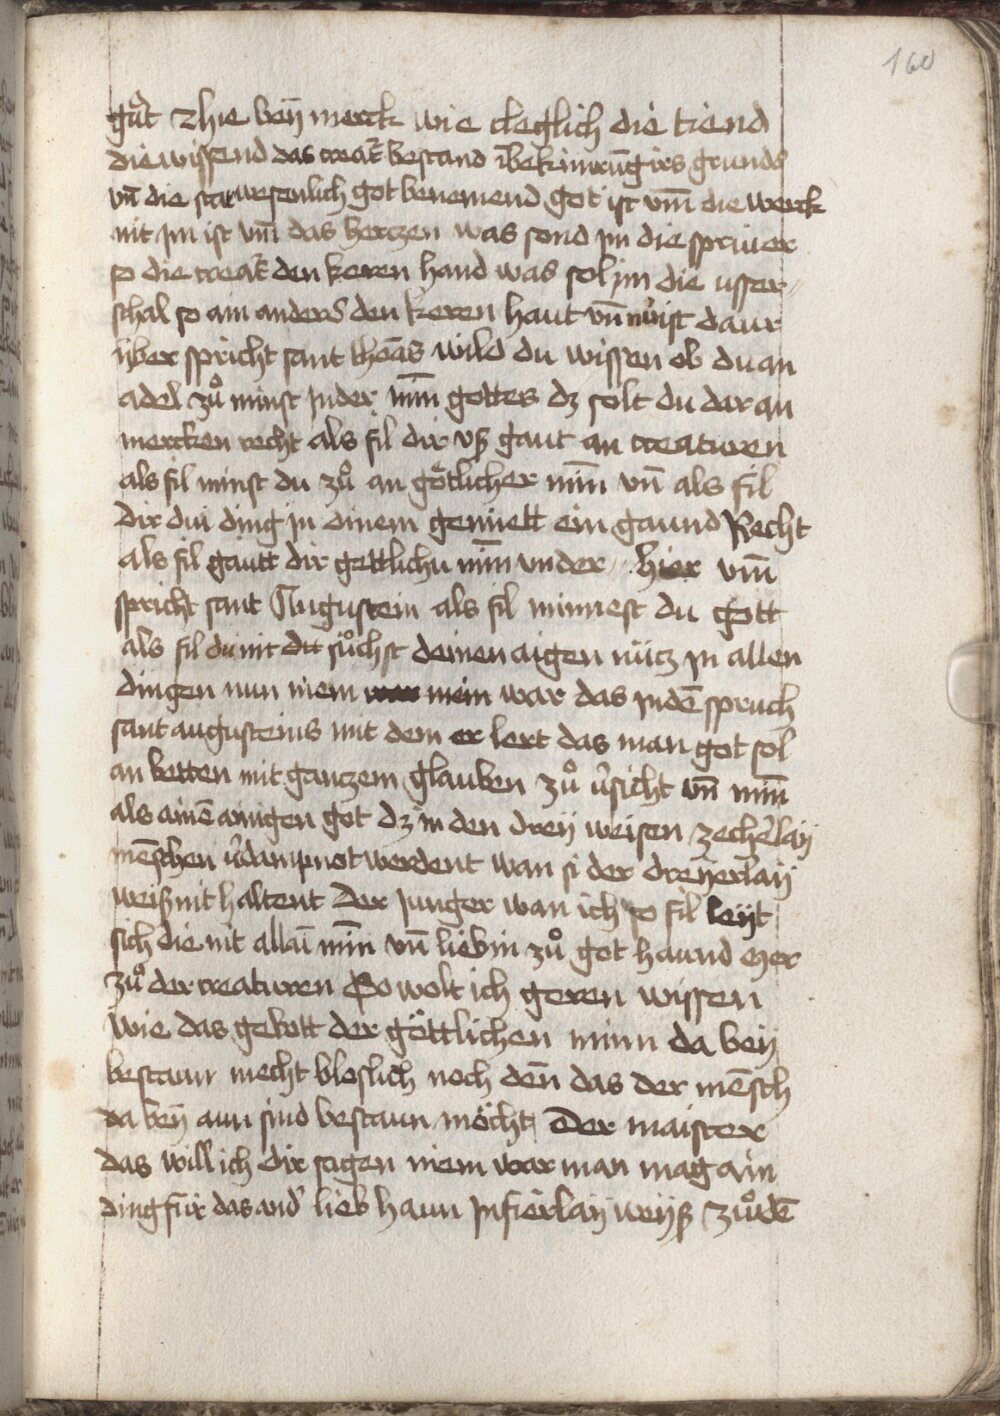 160
gu̍t Zhie beÿ merck wie cleglich die tiend
die wissend das creat̄ bestand kinrūg irs grunds
vn̄ die starwesenlich got benemend got ist vm̄ die werck
nit Jm ist vm̄ das hertzen was sond Jm die spriuer
so die creat̄ den keren hand was sol im die vsser
schal so ain anders den keren haut vn̄ ist daur
über spricht sant thoās wild du wissen ob du an
adel zů minst Jnder min̄ gottes dz solt du dar an
mercken recht als fil dir vß gaut an creaturen
als fil minst du zů an götlicher min̄ vn̄ als fil
dir dui ding in dinem gemiett ein gaund Recht
als fil gautt dir gettlichu min̄ vnder hier vm̄
spricht sant Augustein als fil minnest du gott
als fil du nit sůchst deinen aigen nütz Jn allen
dingen nun niem mein war das Jndē spruch
sant augusteins mit dem er lert das man got sol
an betten mit gantzem glauben zů v̓sicht vn̄ min̄
als ainē ainigen got dz in den dreÿ weisen zecherlaÿ
mēschen v̓dampnot werdent wan si der dreÿerlaÿ
weiß nit haltent Der Junger wan ich so fil leÿt
sich die nit allaī min̄ vn̄ liebin zů got haund mer
zů der creaturen So wolt ich geren wissen
wie das gebott der göttlichen minn da beÿ
bestaun mecht bloslich noch den̄ das der mēsch
da beÿ aun sind bestaun möcht Der maister
das will ich dir sagen niem war man mag ain
ding für das and̓ lieb haun Jnfierlaÿ weÿß zůdē